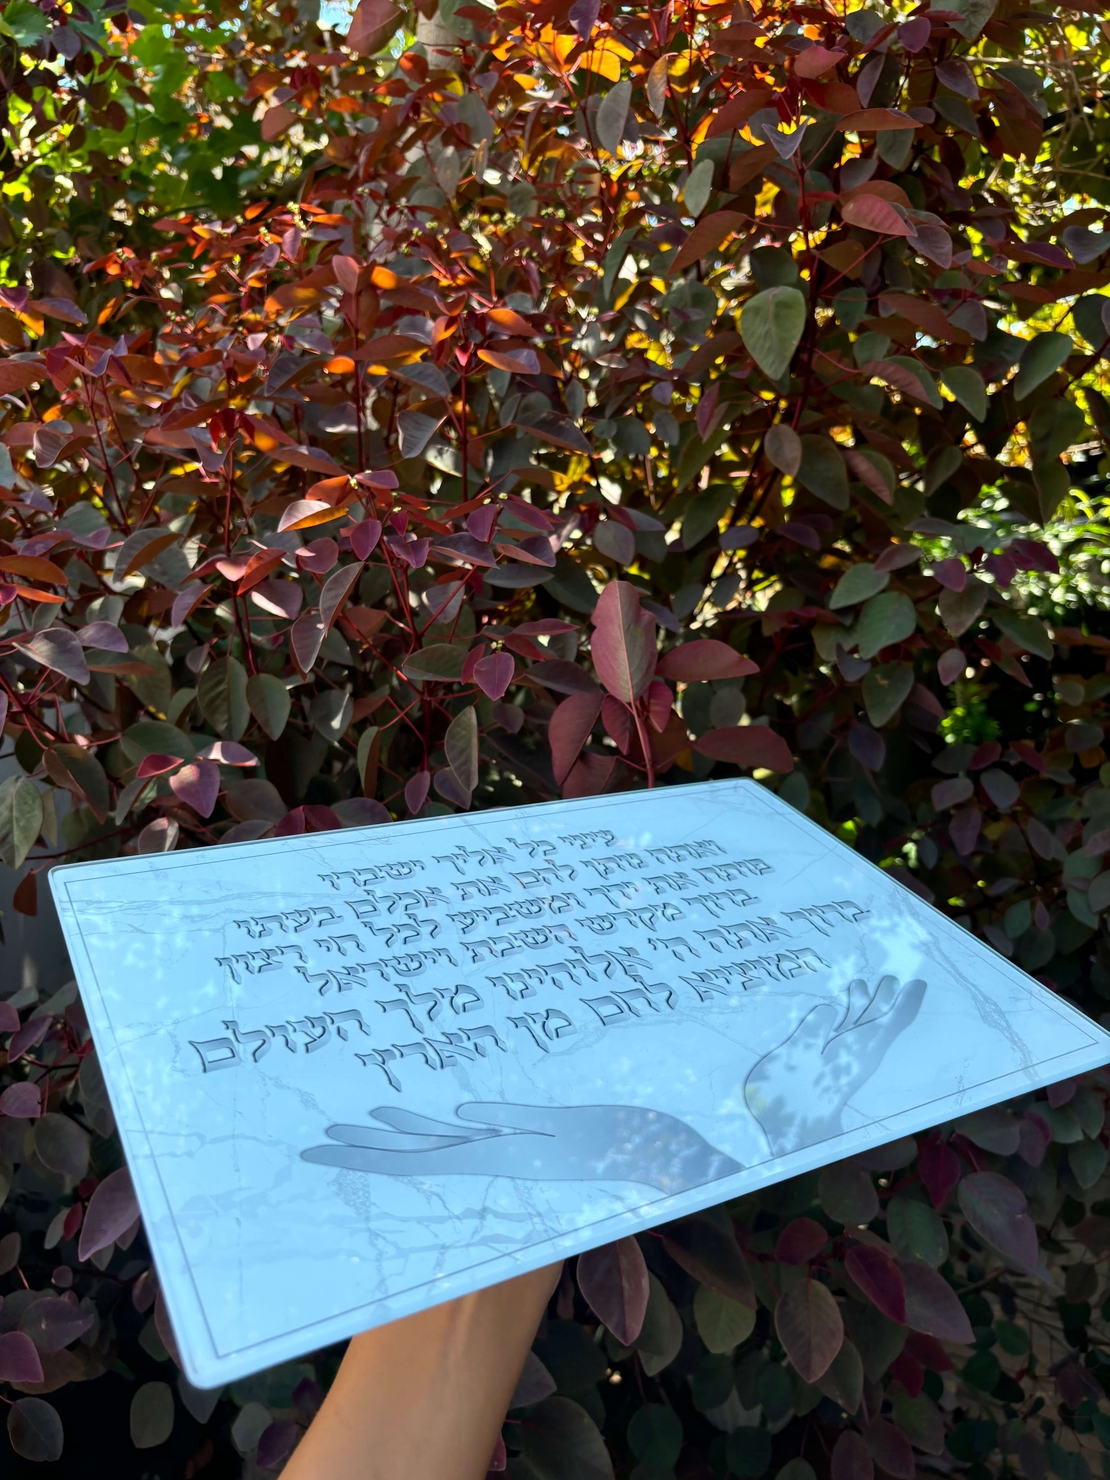 עיני כל אליך ישברו
ואתה נותן להם את אכלם בעתו
פותח את ידך ומשביע לכל חי רצון
ברוך מקדש השבת וישראל
ברוך אתה ה' אלוהינו מלך העולם
המוציא לחם מן הארץ